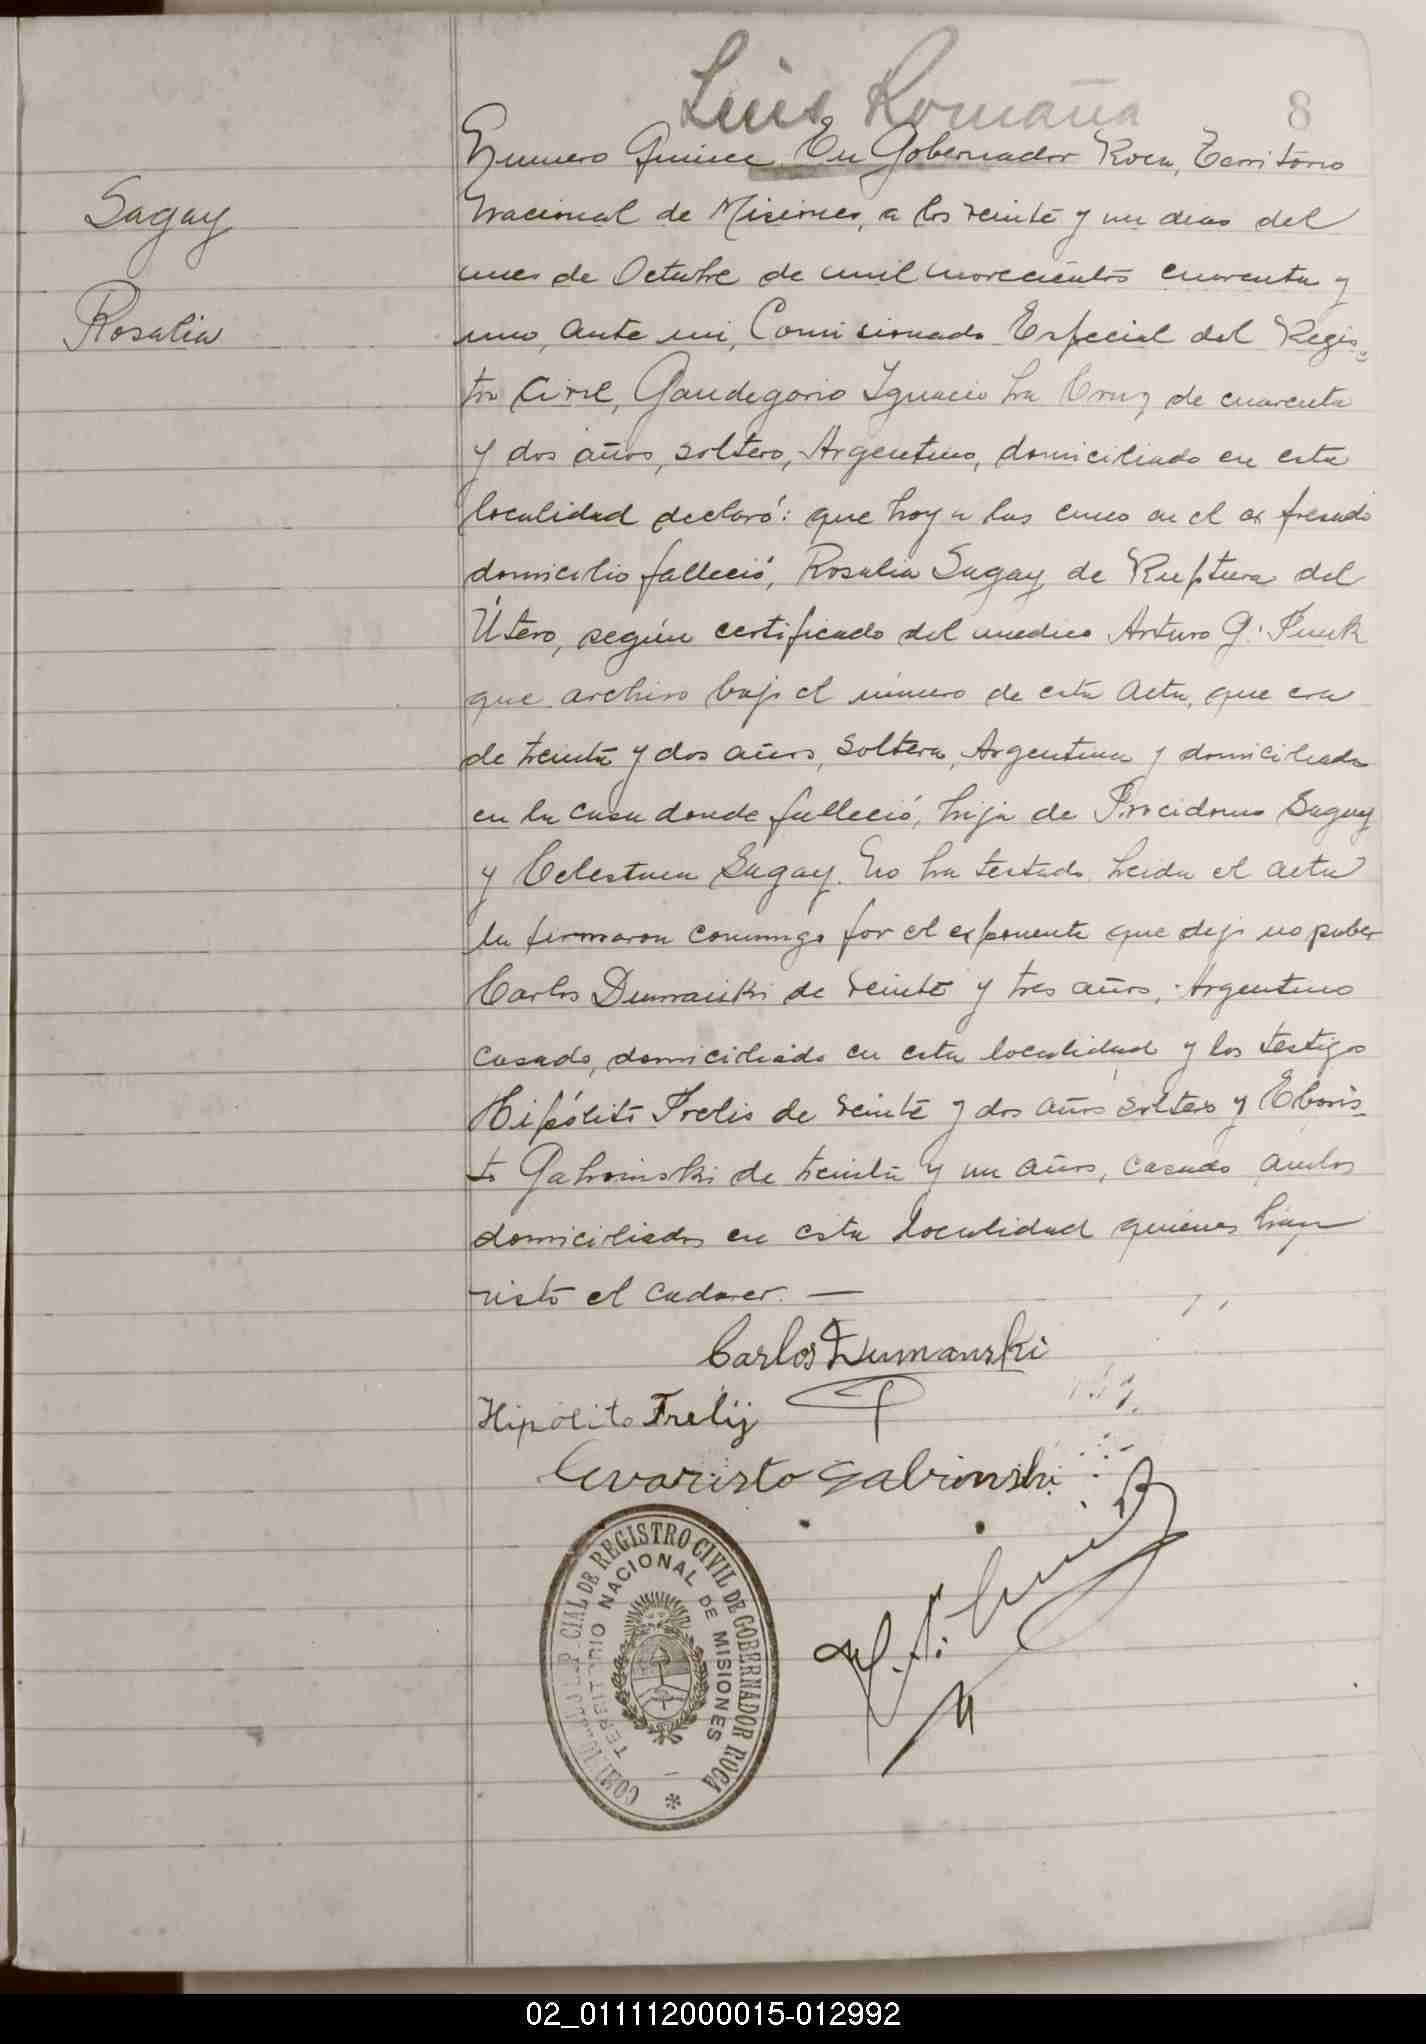 Luis Romaña
8
Numero Quince. En Gobernador Roca, Territorio
Sagay
Nacional de Misiones, a los veinte y un dias del
mes de Octubre de mil novecientos cuarenta y
Rosalia
uno, ante mi, Comisionado Especial del Regis=
tro Civil, Gaudegorio Ignacio La Cruz de cuarenta
y dos años, soltero, Argentino, domiciliado en esta
localidad declaró: que hoy a las cinco en el expresado
domicilio falleció, Rosalia Sagay de Ruptura del
Útero, según certificado del medico Arturo G. Funk
que archivo bajo el número de esta Acta, que era
de treinta y dos años, Soltera, Argentina y domiciliada
en la casa donde falleció, hija de Sagay
y Celestina Sagay. No ha testado. Leida el acta
la firmaron conmigo por el exponente que dijo no saber
Carlos Dumanski de veinte y tres años, Argentino
casado, domiciliado en esta localidad y los testigos
Hipólito Frelis de veinte y dos años soltero y Ebaris-
to Gabrinski de treinta y un años, casado, ambos
domiciliados en esta localidad quienes han
visto el cadaver. —
Carlos Dumanski
Hipólito Frelij
Evaristo Gabrinski
REGISTRO CIVIL DE GOBERNADOR ROCA
TERRITORIO NACIONAL DE MISIONES
02_011112000015-012992